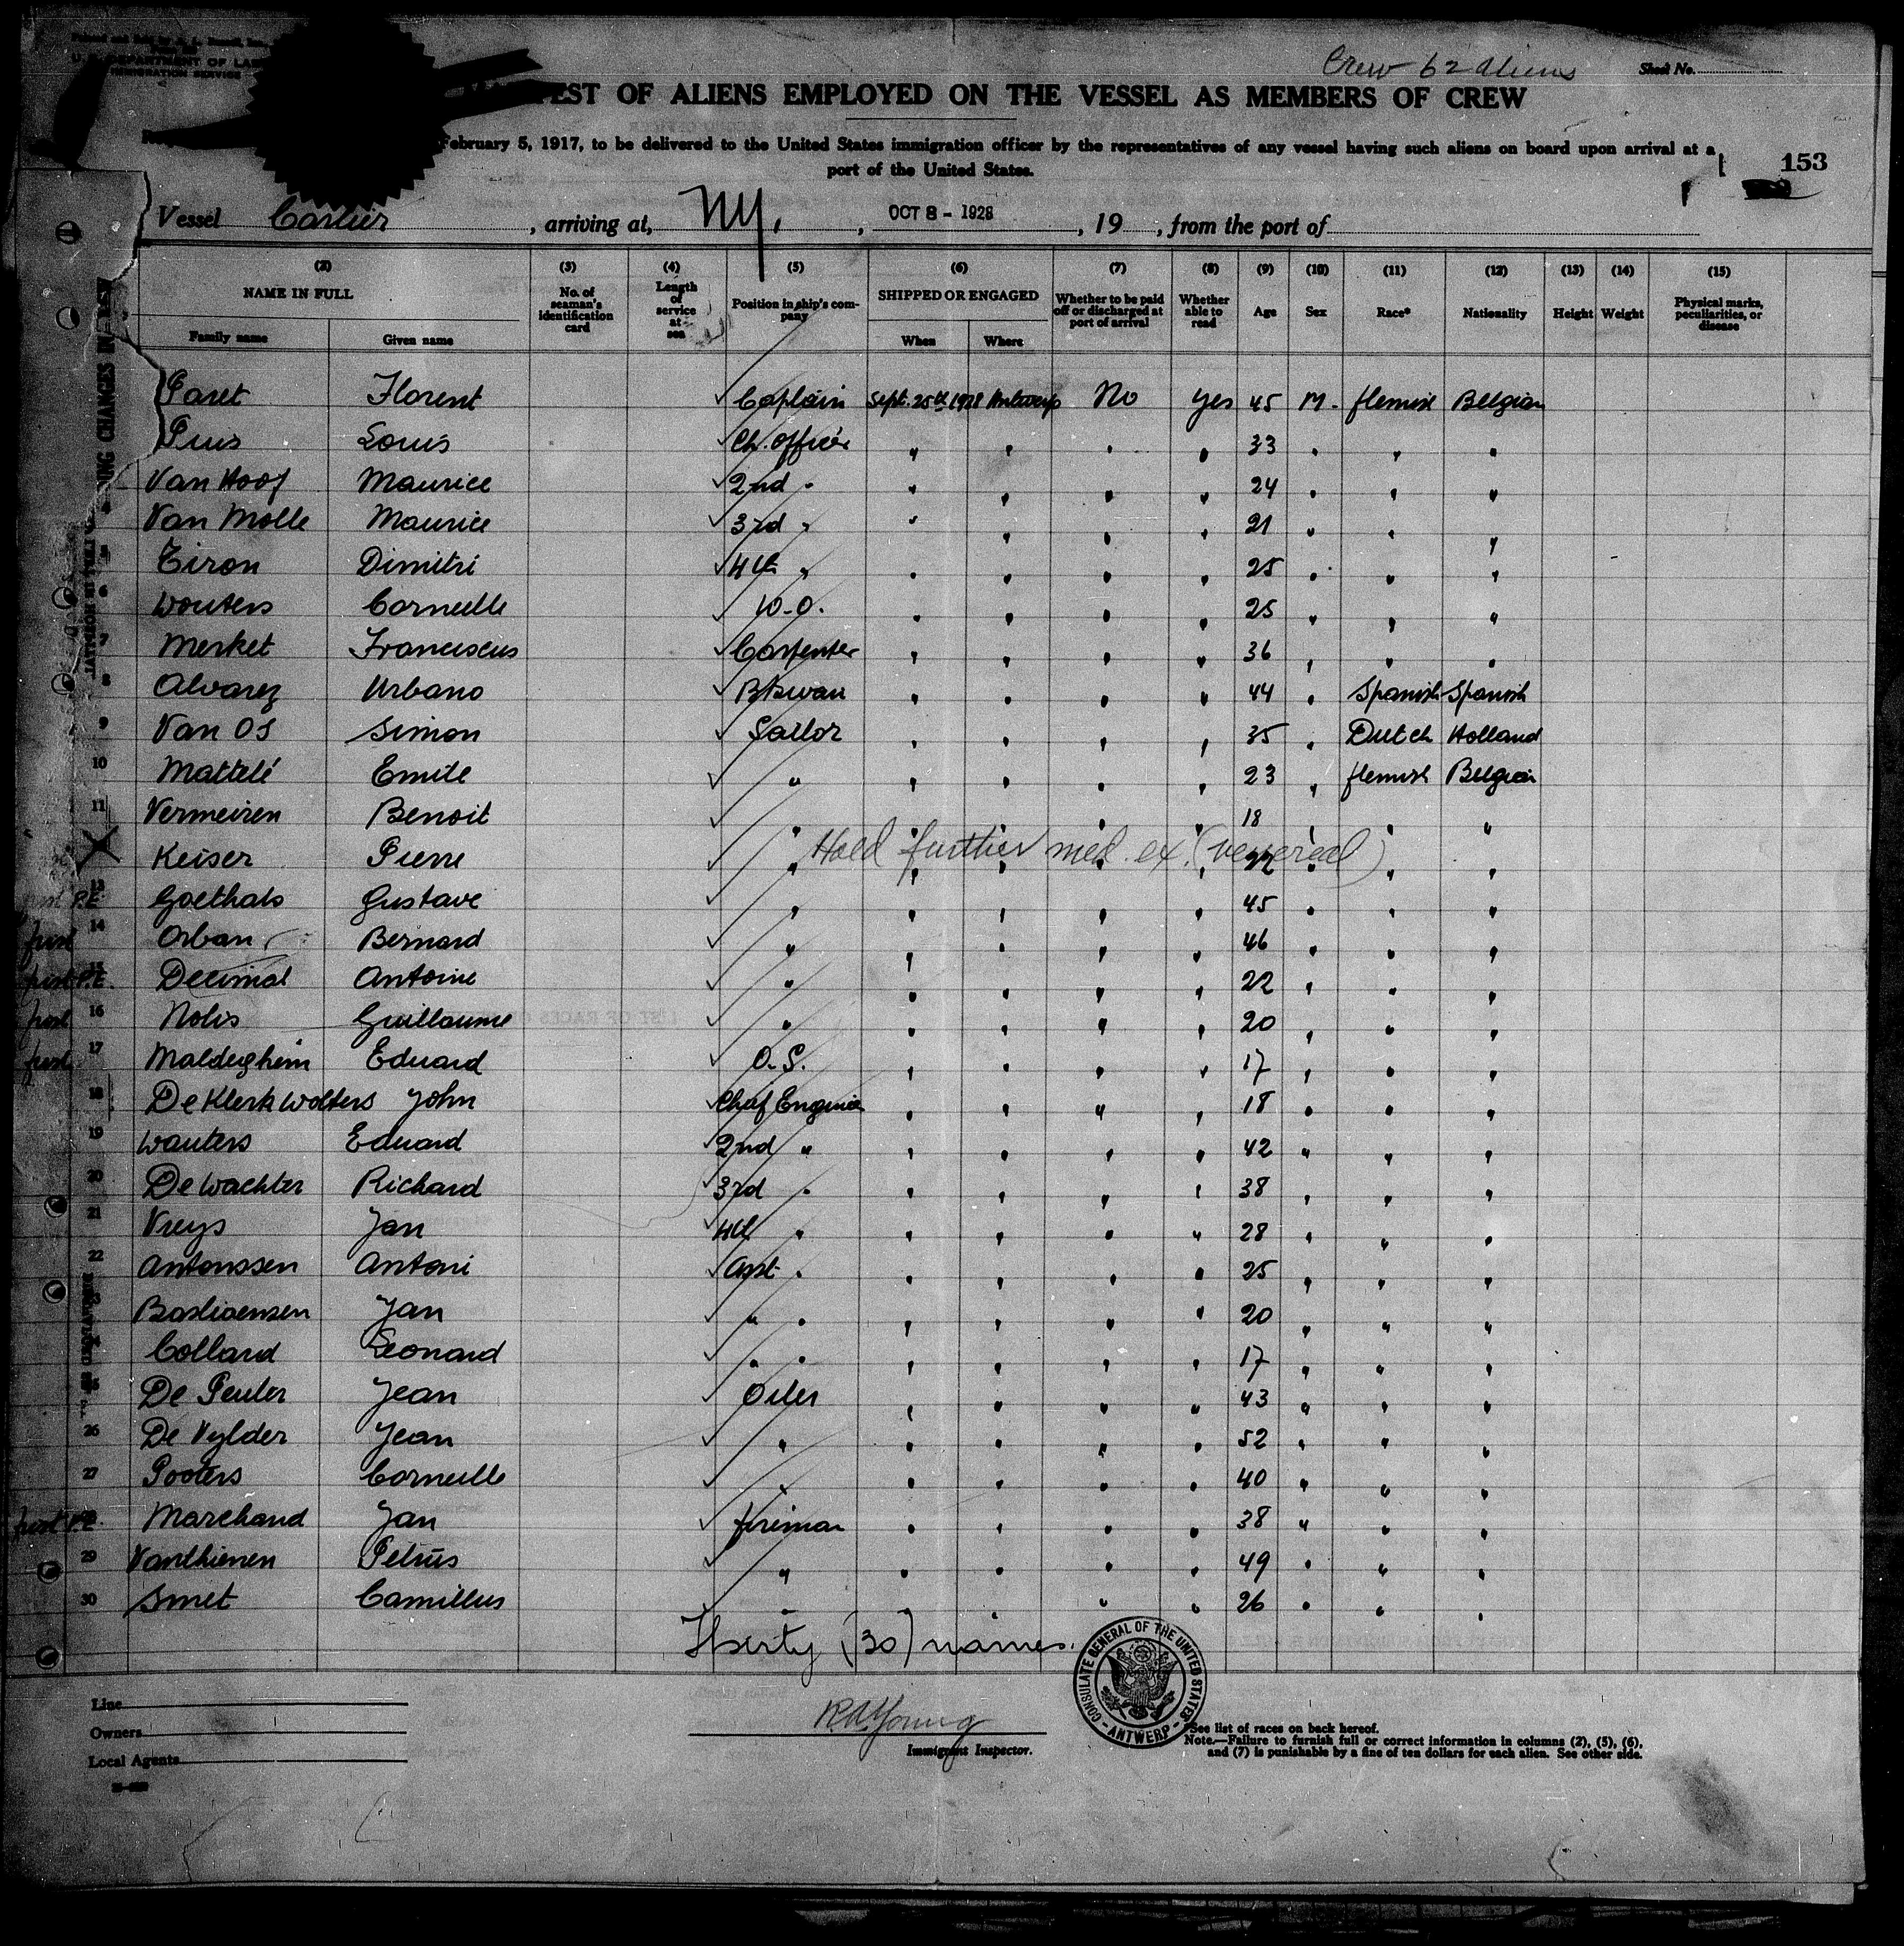 Crew 62 aliens
Sheet No.
U. S. DEPARTMENT OF LA
IMMIGRATION SERVICE
EST OF ALIENS EMPLOYED ON THE VESSEL AS MEMBERS OF CREW
February 5, 1917, to be delivered to the United States immigration officer by the representatives of any vessel having such aliens on board upon arrival at a
port of the United States.
153
Vessel Carlier, arriving at, NY, OCT 8 - 1928, 19, from the port of
(2) (3) (4) (5) (6) (7) (8) (9) (10) (11) (12) (13) (14) (15)
NAME IN FULL No. of seaman's identification card Length of service at sea Position in ship's company SHIPPED OR ENGAGED Whether to be paid off or discharged at port of arrival Whether able to read Age Sex Race* Nationality Height Weight Physical marks, peculiarities, or disease
Family name Given name When Where
Paret Florent Captain Sept. 25th 1928 Antwerp No Yes 45 M. flemish Belgian
Pius Louis Ch. officer " " " " 33 " " "
Van Hoof Maurice 2nd " " " " " 24 " " "
Van Molle Maurice 3rd " " " " " 21 " " "
5 Tiron Dimitri 4th " " " " " 25 " " "
6 Wouters Corneille W.O. " " " " 25 " " "
7 Merket Franciscus Carpenter " " " " 36 " " "
8 Alvarez Urbano Btswan " " " " 44 " Spanish Spanish
9 Van Os Simon Sailor " " " " 35 " Dutch Holland
10 Mattelé Emile " " " " " 23 " flemish Belgian
11 Vermeiren Benoit " " " " " 18 " " "
Hold further med. ex. (venereal)
X Keiser Pierre " " " " " 22 " " "
P.E. 13 Goethals Gustave " " " " " 45 " " "
first 14 Orban Bernard " " " " " 46 " " "
first P.E. 15 Decimal Antoine " " " " " 22 " " "
first 16 Nolis Guillaume " " " " " 20 " " "
first 17 Maldeghem Eduard O.S. " " " " 17 " " "
18 De Klerk Wolters John Chief Engineer " " " " 18 " " "
19 Wauters Eduard 2nd " " " " " 42 " " "
20 De Wachter Richard 3rd " " " " " 38 " " "
21 Vreys Jan 4th " " " " " 28 " " "
22 Antonssen Antoni Asst " " " " " 25 " " "
23 Bastiaensen Jan " " " " " " 20 " " "
24 Collard Leonard " " " " " " 17 " " "
25 De Peuter Jean Oiler " " " " 43 " " "
26 De Vylder Jean " " " " " 52 " " "
27 Pooters Corneille " " " " " 40 " " "
first P.E. 28 Marchand Jan fireman " " " " 38 " " "
29 Vanthienen Petrus " " " " " 49 " " "
30 Smet Camillus " " " " " 26 " " "
Thirty (30) names.
CONSULATE GENERAL OF THE UNITED STATES
- ANTWERP -
Line
Owners
Local Agents
R A Young
Immigrant Inspector.
*See list of races on back hereof.
Note.—Failure to furnish full or correct information in columns (2), (5), (6),
and (7) is punishable by a fine of ten dollars for each alien. See other side.